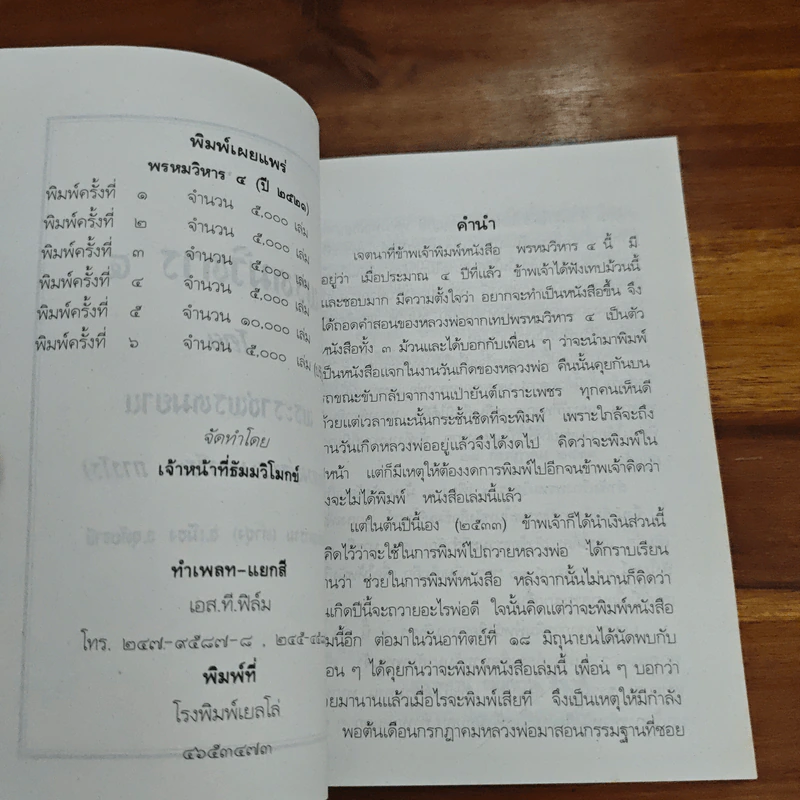 พิมพ์เผยแพร่
พรหมวิหาร ๔ (ปี ๒๕๒๑)
พิมพ์ครั้งที่ ๑ จำนวน ๕,๐๐๐ เล่ม
พิมพ์ครั้งที่ ๒ จำนวน ๕,๐๐๐ เล่ม
พิมพ์ครั้งที่ ๓ จำนวน ๕,๐๐๐ เล่ม
พิมพ์ครั้งที่ ๔ จำนวน ๕,๐๐๐ เล่ม
พิมพ์ครั้งที่ ๕ จำนวน ๑๐,๐๐๐ เล่ม
พิมพ์ครั้งที่ ๖ จำนวน ๕,๐๐๐ เล่ม
จัดทำโดย
เจ้าหน้าที่ธัมมวิโมกข์
ทำเพลท-แยกสี
เอส.ที.ฟิล์ม
โทร. ๒๔๗-๙๕๘๗-๘ ,
พิมพ์ที่
โรงพิมพ์เยลโล่
๔๖๕๓๔๗๓
คำนำ
เจตนาที่ข้าพเจ้าพิมพ์หนังสือ พรหมวิหาร ๔ นี้ มี
อยู่ว่า เมื่อประมาณ ๔ ปีที่แล้ว ข้าพเจ้าได้ฟังเทปม้วนนี้
และชอบมาก มีความตั้งใจว่า อยากจะทำเป็นหนังสือขึ้น จึง
ได้ถอดคำสอนของหลวงพ่อจากเทปพรหมวิหาร ๔ เป็นตัว
หนังสือทั้ง ๓ ม้วนและได้บอกกับเพื่อน ๆ ว่าจะนำมาพิมพ์
เป็นหนังสือแจกในงานวันเกิดของหลวงพ่อ คืนนั้นคุยกันบน
รถขณะขับกลับจากงานเป่ายันต์เกราะเพชร ทุกคนเห็นดี
ด้วยแต่เวลาขณะนั้นกระชั้นชิดที่จะพิมพ์ เพราะใกล้จะถึง
งานวันเกิดหลวงพ่ออยู่แล้วจึงได้งดไป คิดว่าจะพิมพ์ใน
หน้า แต่ก็มีเหตุให้ต้องงดการพิมพ์ไปอีกจนข้าพเจ้าคิดว่า
คงจะไม่ได้พิมพ์ หนังสือเล่มนี้แล้ว
แต่ในต้นปีนี้เอง (๒๕๓๓) ข้าพเจ้าก็ได้นำเงินส่วนนี้
คิดไว้ว่าจะใช้ในการพิมพ์ไปถวายหลวงพ่อ ได้กราบเรียน
ท่านว่า ช่วยในการพิมพ์หนังสือ หลังจากนั้นไม่นานก็คิดว่า
วันเกิดปีนี้จะถวายอะไรพ่อดี ใจนั้นคิดแต่ว่าจะพิมพ์หนังสือ
เล่มนี้อีก ต่อมาในวันอาทิตย์ที่ ๑๘ มิถุนายนได้นัดพบกับ
เพื่อน ๆ ได้คุยกันว่าจะพิมพ์หนังสือเล่มนี้ เพื่อน ๆ บอกว่า
มานานแล้วเมื่อไรจะพิมพ์เสียที จึงเป็นเหตุให้มีกำลัง
พอต้นเดือนกรกฎาคมหลวงพ่อมาสอนกรรมฐานที่ซอย